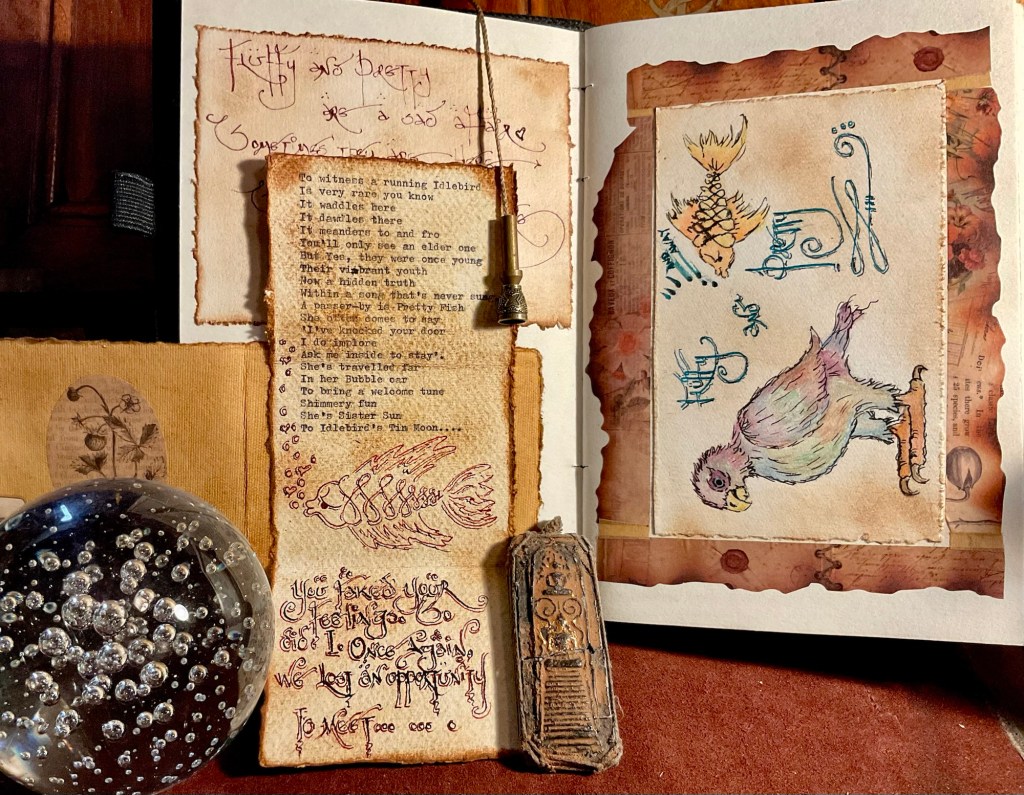 Fluffy and Pretty
are a sad affair
Sometimes they are
To witness a running Idlebird
Is very rare you know
It waddles here
It dawdles there
It meanders to and fro
You'll only see an elder one
But Yes, they were once young
Their vibrant youth
Now a hidden truth
Within a song that's never sun
A passer-by is Pretty Fish
She often comes to say
'I've knocked your door
I do implore
Ask me inside to stay'.
She's travelled far
In her Bubble car
To bring a welcome tune
Shimmery fun
She's Sister Sun
To Idlebird's Tin Moon....
You Faked your
feelings. So
did I. Once Again,
we Lost an opportunity
To meet... ... .
Fluffy
and
Pretty